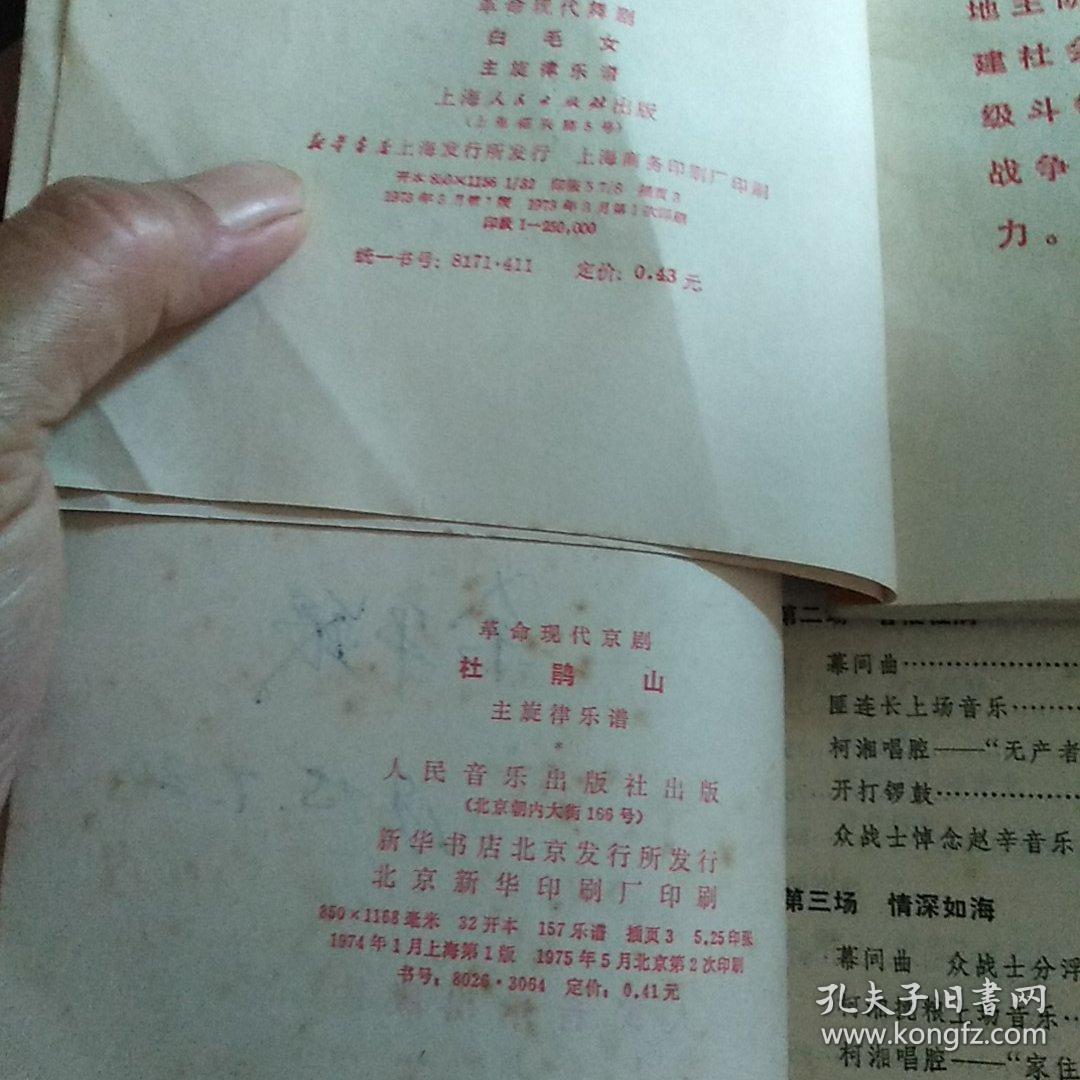 革命现代舞剧
白毛女
主旋律乐谱
上海人民出版社出版
(上海绍兴路5号)
新华书店上海发行所发行 上海商务印刷厂印刷
开本 850×1156 1/32 印张 5 7/8 插页 3
1973年3月第1版 1973年3月第1次印刷
印数 1—250,000
统一书号：8171·411 定价：0.43元
地主
建社会
级斗
战争
力。
革命现代京剧
杜鹃山
主旋律乐谱
*
人民音乐出版社出版
(北京朝内大街166号)
新华书店北京发行所发行
北京新华印刷厂印刷
850×1168毫米 32开本 157乐谱 插页3 5.25印张
1974年1月上海第1版 1975年5月北京第2次印刷
书号：8026·3064 定价：0.41元
第二场
幕间曲
匪连长上场音乐
柯湘唱腔——“无产者
开打锣鼓
众战士悼念赵辛音乐
第三场 情深如海
幕间曲 众战士分浮
上场音乐
柯湘唱腔——“家住
孔夫子旧书网
www.kongfz.com